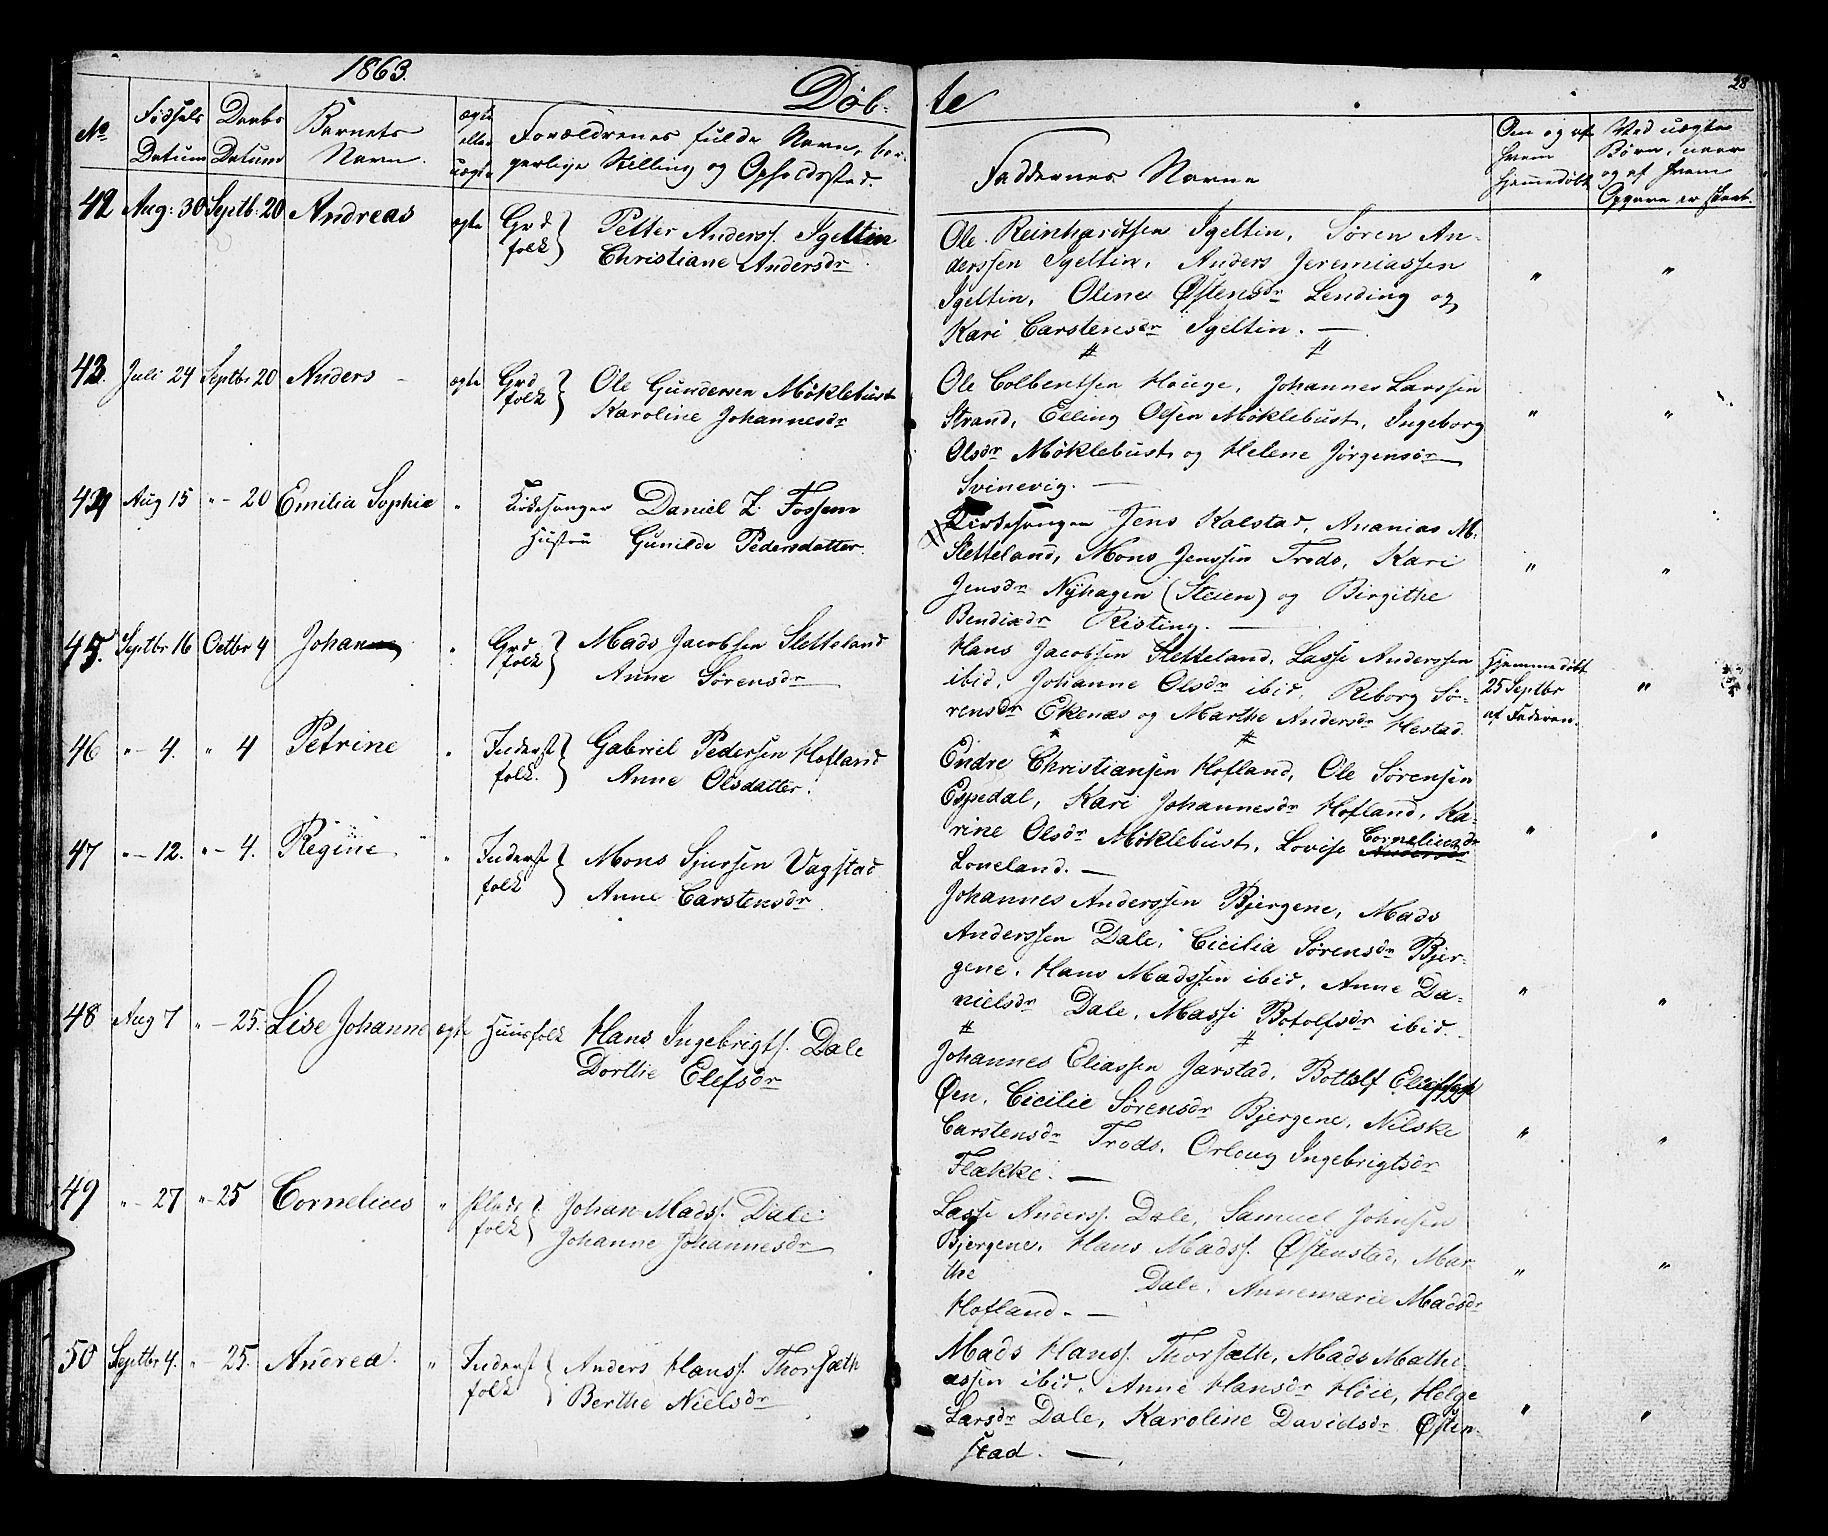 1863.
Døb-
te
28
No
Fødsels
Datum
Daabs
Datum
Barnets
Navn.
ægte
eller
uægte
Forældrenes fulde Navn, bor-
gerlige Stilling og Opholdssted.
Faddernes Navne
Om og af
hvem
hjemmedøbt
Ved uægte
Børn, naar
og af hvem
Opgave er skeet.
42 Aug: 30 Septb: 20 Andreas ægte Grd
folk } Petter Anderss. Igeltin
Christiane Andersdr
Ole Reinhardtsen Igeltin, Søren An-
derssen Igeltin, Anders Jeremiassen
Igeltin, Oline Østensdr Lending og
Kari Carstensdr Igeltin. —
" "
43. Juli 24 Septbr 20 Anders ægte Grd
folk } Ole Gundersen Møklebust
Karoline Johannesdr
Ole Colbentsen Houge, Johannes Larssen
Strand, Elling Olsen Møklebust, Ingeborg
Olsdr Møklebust og Helene Jørgensdr
Svinevig. —
" "
44 Aug 15 " - 20 Emilia Sophie " Kirkesanger Daniel Z. Fossum
Hustru Gunilde Pedersdatter.
Kirkesanger Jens Kalstad, Ananias M.
Sletteland, Mons Jenssen Trods, Kari
Jensdr Nyhagen (Steien) og Birgithe
Bendixdr Risting. —
" "
45. Septbr 16 Octbr 4 Johan " Grd
folk } Mads Jacobsen Sletteland
Anne Sørensdr
Hans Jacobsen Sletteland, Lasse Anderssen
ibid, Johanne Olsdr ibid, Reborg Sø-
rensdr Ekenæs og Marthe Andersdr Hestad.
Hjemmedøbt
25 Septbr
af Faderen.
"
46 " - 4. " 4 Petrine " Inderst
folk. } Gabriel Pedersen Hofland
Anne Olsdatter.
Endre Christiansen Hofland, Ole Sørensen
Espedal, Kari Johannesdr Hofland, Ka-
rine Olsdr Møklebust, Lovise Corneliusdr
Loneland. —
" "
47 " - 12. " - 4. Regine " Inderst
folk } Mons Sjurssen Vagstad
Anne Carstensdr.
Johannes Anderssen Bjergene, Mads
Anderssen Dale, Cicilia Sørensdr Bjer-
gene, Hans Madssen ibid, Anne Da-
nielsdr Dale, Massi Botolfsdr ibid.
" "
48 Aug 7 " - 25. Lise Johanne ægte Huusfolk Hans Ingebrigts. Dale
Dorthe Elefsdr
Johannes Eliassen Jarstad, Bottolf
Øen, Cicilie Sørensdr Bjergene, Nilske
Carstensdr Trods, Orloug Ingebrigtsdr
Flekke. —
" "
49 " - 27 " - 25 Cornelius " Plads
folk } Johan Madss. Dale
Johanne Johannesdr
Lasse Anderss. Dale, Samuel Johnsen
Bjergene, Hans Madss. Østenstad, Mar-
the Dale, Annemarie Madsdr
Hofland. —
" "
50 Septbr 4. " - 25. Andrea. " Inderst
folk } Anders Hanss. Thorsæth
Berthe Nielsdr
Mads Hanss. Thorsæth, Mads Mathi-
assen ibid, Anne Hansdr Høie, Helge
Larsdr Dale, Karoline Davidsdr Østen-
stad. —
" "